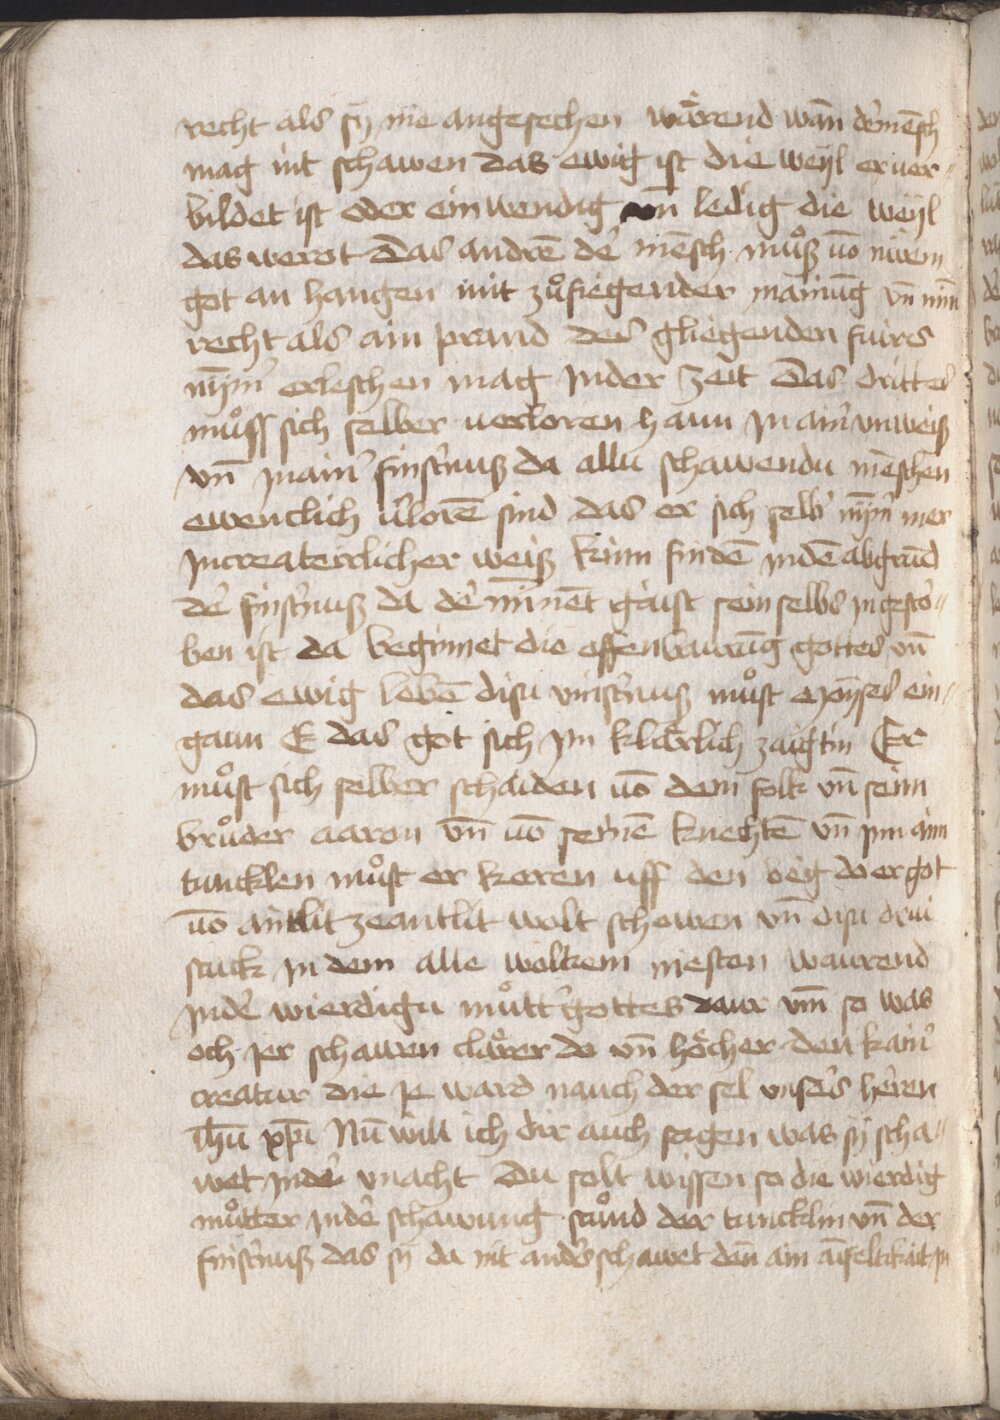 recht als sÿ nie angesechen wärend wān dˀ mēsch
mag nit schawen das ewig ist die weÿl er uer⸗
bildet ist oder einwendig vn̄ ledig die weÿl
das werot Das andrē dˀ mēsch muͦß uō niirem
got an hangen mit zuͦfiegender mainūg vn̄ minn
recht als ain prand des gliegenden fuirs
nÿm̄ˀ erleschen mag Jn der zeit Das drittes
muͦss sich selber uerloren haun Jn ainˀ vnweiß
vn̄ Jn ainˀ finstˀnuß da allu schawendu mēschen
ewenclich ūlorē sind das er sich selbˀ nÿm̄ˀ mer
Jn createrlicher weiß kinn findē Jn dē abgrūd
dˀ finstˀnuß da dˀ minnēt gaist sein selbs Jn gestoˀ⸗
ben ist da beginnet die offenbaurūg gottes vn̄
das ewig lebē disu vinstˀnuß muͦst moÿses ein⸗
gaun E das got sich Jm klärlich zaigtin Er
muͦst sich selber schaiden uō dem folk vn̄ seim
bruͦder aaron vn̄ uō seinē knechtē vn̄ Jnn ainˀ
tuncklen muͦst er keren uff den bˀg do er got
uō antlit ze antlit wolt schowen vn̄ disu drui
stuck Jn dem alle wolkem nesten waurend
Jn dˀ wierdigu muͦttˀ gottes daur vm̄ so was
och ier schawen clärer do vn̄ höcher den kainˀ
creatur die ie ward nauch der sel vnsˀs hˀren
Jhū xp̄i Nū will ich dir auch sagen was sÿ scha⸗
wet Jn dˀ vnacht Du solt wissen so die wierdig
muͦtter Jn dˀ schawung stuͦnd der tuncklin vn̄ der
finstˀnuß das sÿ da nit andˀs schawet dēn ain aifeltikait Jn